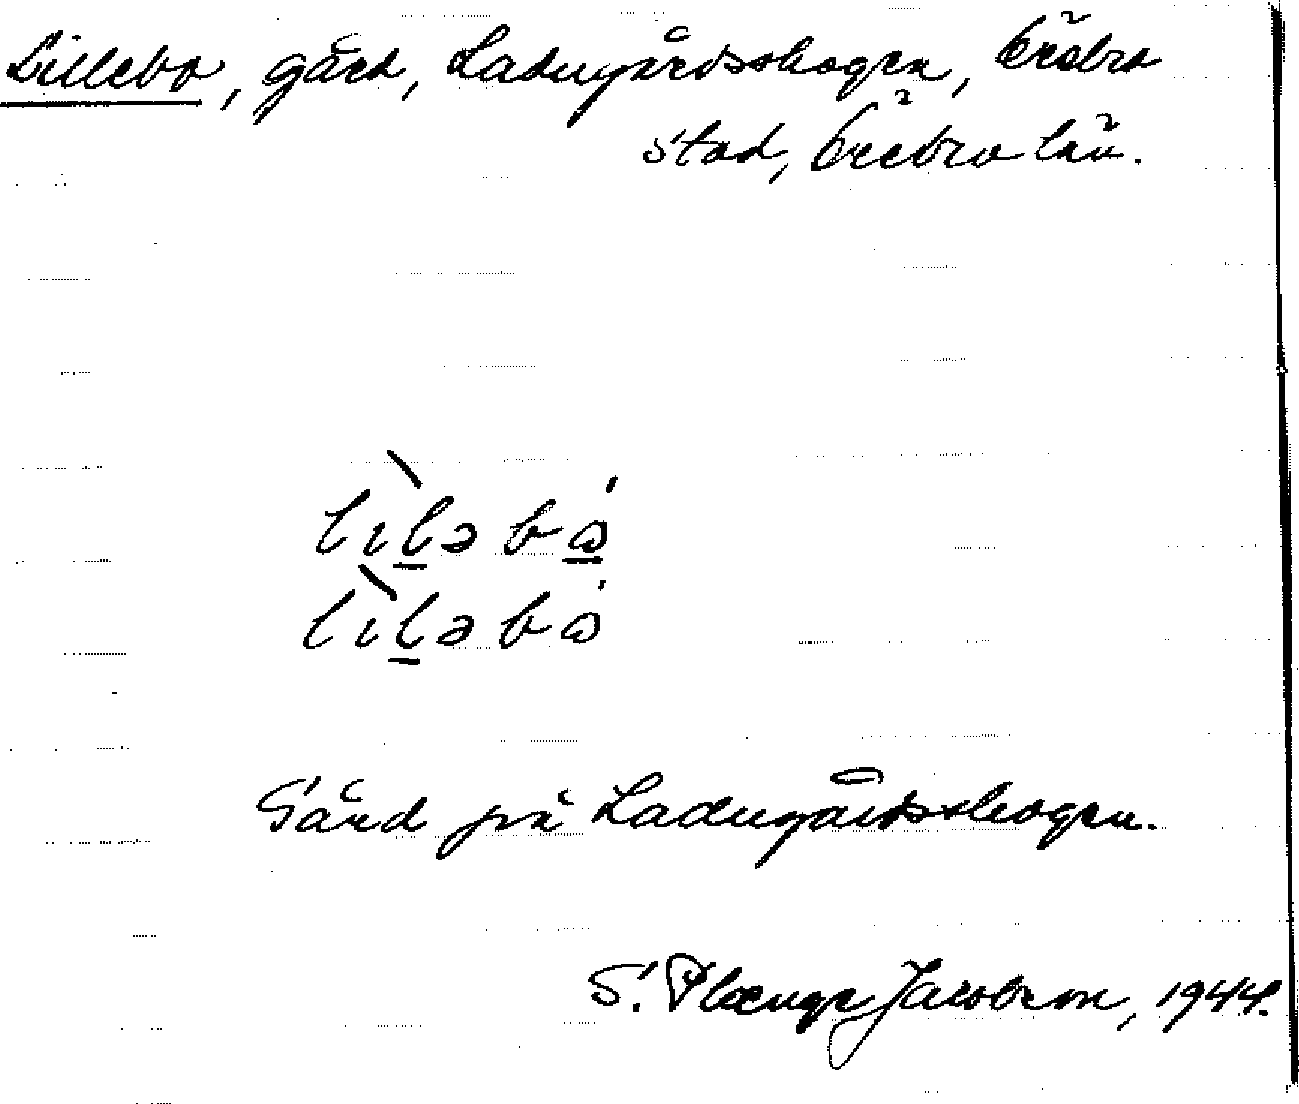 Lillebo, gård, Ladugårdsskogen, Örebro
stad, Örebro län.
lìlə bó
lìlə bó
Gård på Ladugårdsskogen.
S. Plænge Jacobson, 1944.